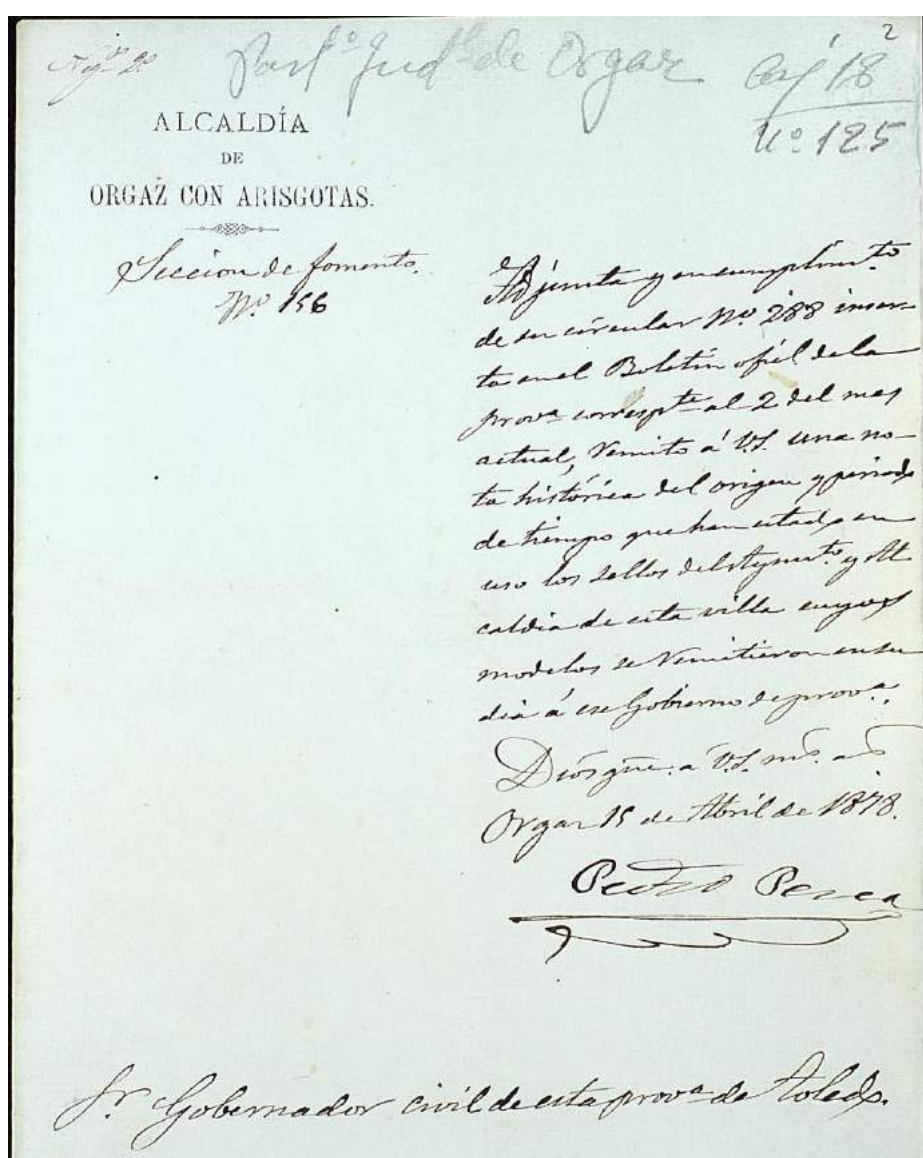 2
Neg.º 2º
Part.º Jud.l de Orgaz
Caj 18
Nº 125
ALCALDÍA
DE
ORGAZ CON ARISGOTAS.
Seccion de fomento.
Nº 156
Adjunta y en cumplim.to
de su circular Nº 288 inser-
ta en el Boletin ofiél de la
prov.a correspte al 2 del mes
actual, remito á V.S. una no-
ta histórica del origen y periodo
de tiempo que han estado en
uso los sellos del Aynmto. y Al
caldia de esta villa cuyos
modelos se remitieron en su
dia á ese Gobierno de prov.a.
Dios gue. a V.S. ms. as
Orgaz 15 de Abril de 1878.
Pedro Perea
Sr Gobernador civil de esta prov.a de Toledo.